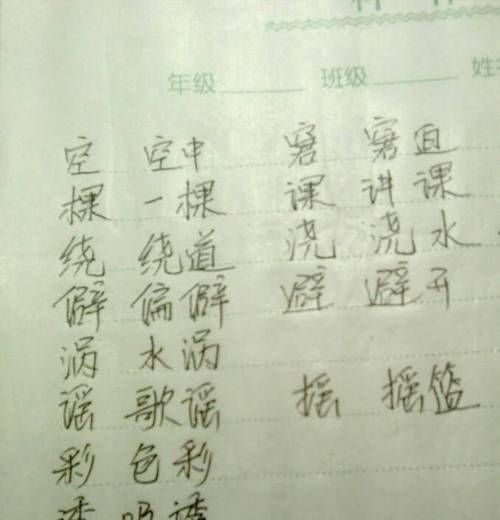 年级 班级 姓名
空 空中 窘 窘迫
棵 一棵 课 讲课
绕 绕道 浇 浇水
僻 偏僻 避 避开
涡 水涡
谣 歌谣 摇 摇篮
彩 色彩
诱 诱